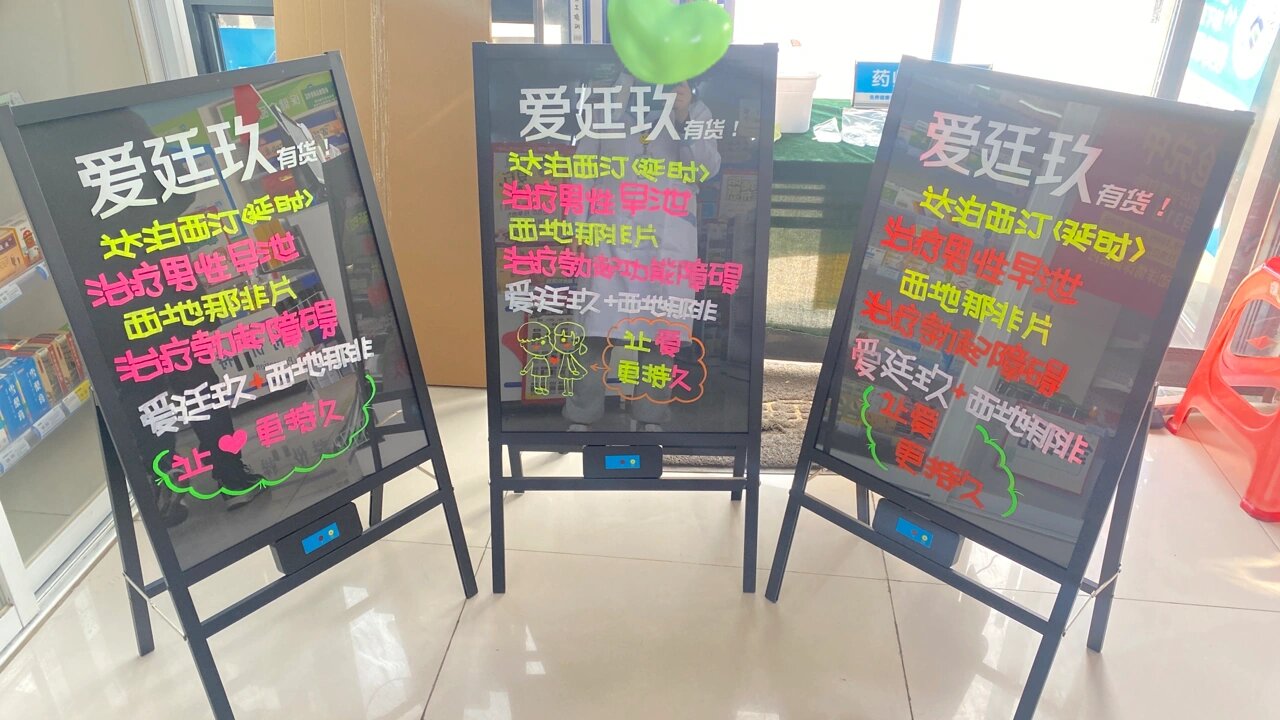 爱廷玖有货！
达泊西汀<延时>
治疗男性早泄
西地那非片
治疗勃起障碍
爱廷玖+西地那非
让 更持久
爱廷玖有货！
达泊西汀<延时>
治疗男性早泄
西地那非片
治疗勃起功能障碍
爱廷玖+西地那非
让爱
更持久
爱廷玖有货！
达泊西汀<延时>
治疗男性早泄
西地那非片
治疗勃起障碍
爱廷玖+西地那非
让爱
更持久